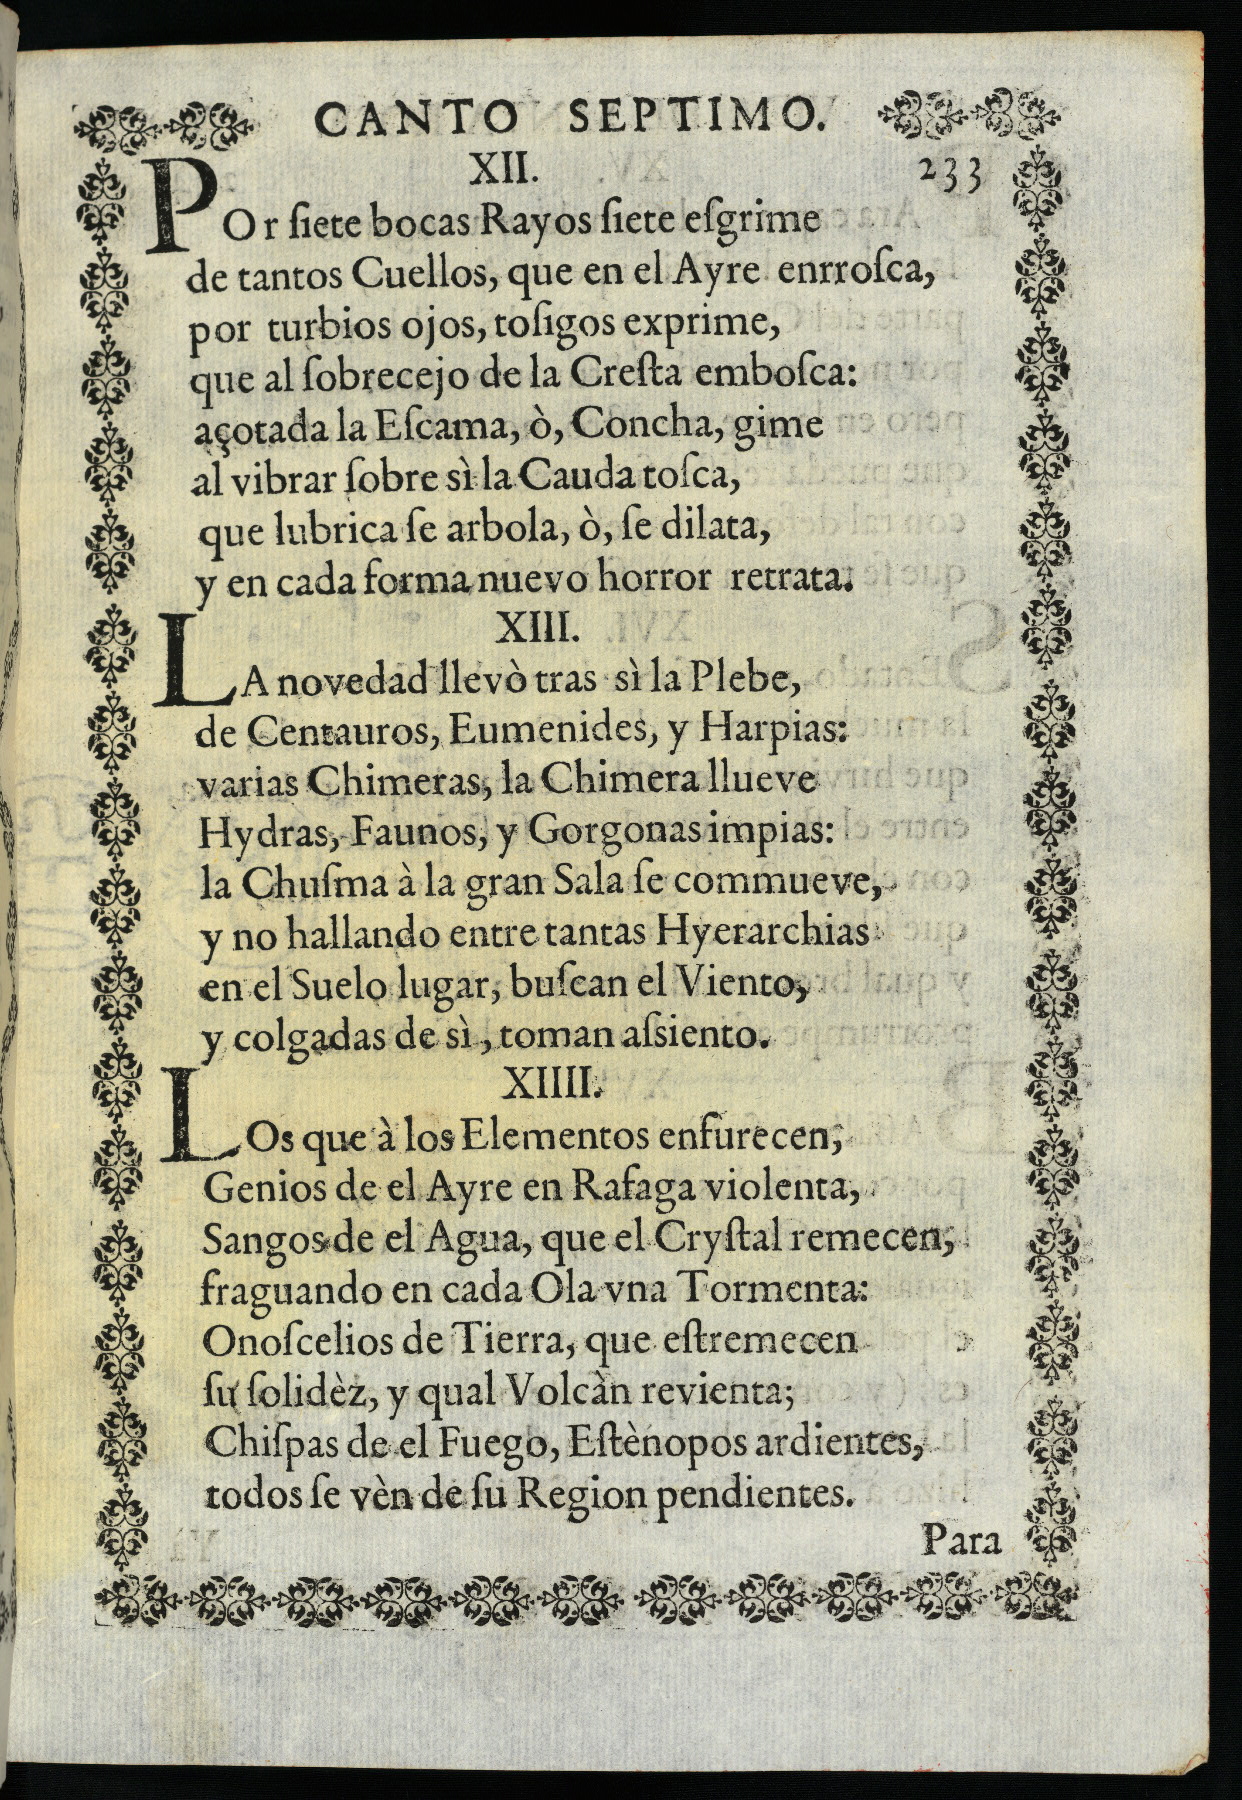 CANTO SEPTIMO.
233
XII.
POr ſiete bocas Rayos ſiete eſgrime
de tantos Cuellos, que en el Ayre enrroſca,
por turbios ojos, toſigos exprime,
que al ſobrecejo de la Creſta emboſca:
açotada la Eſcama, ò, Concha, gime
al vibrar ſobre sì la Cauda toſca,
que lubrica ſe arbola, ò, ſe dilata,
y en cada forma nuevo horror retrata.
XIII.
LA novedad llevò tras sì la Plebe,
de Centauros, Eumenides, y Harpias:
varias Chimeras, la Chimera llueve
Hydras, Faunos, y Gorgonas impias:
la Chuſma à la gran Sala ſe commueve,
y no hallando entre tantas Hyerarchias
en el Suelo lugar, buſcan el Viento,
y colgadas de sì, toman aſsiento.
XIIII.
LOs que à los Elementos enfurecen,
Genios de el Ayre en Rafaga violenta,
Sangos de el Agua, que el Cryſtal remecen,
fraguando en cada Ola vna Tormenta:
Onoſcelios de Tierra, que eſtremecen
ſu ſolidèz, y qual Volcàn revienta;
Chiſpas de el Fuego, Eſtènopos ardientes,
todos ſe vèn de ſu Region pendientes.
Para